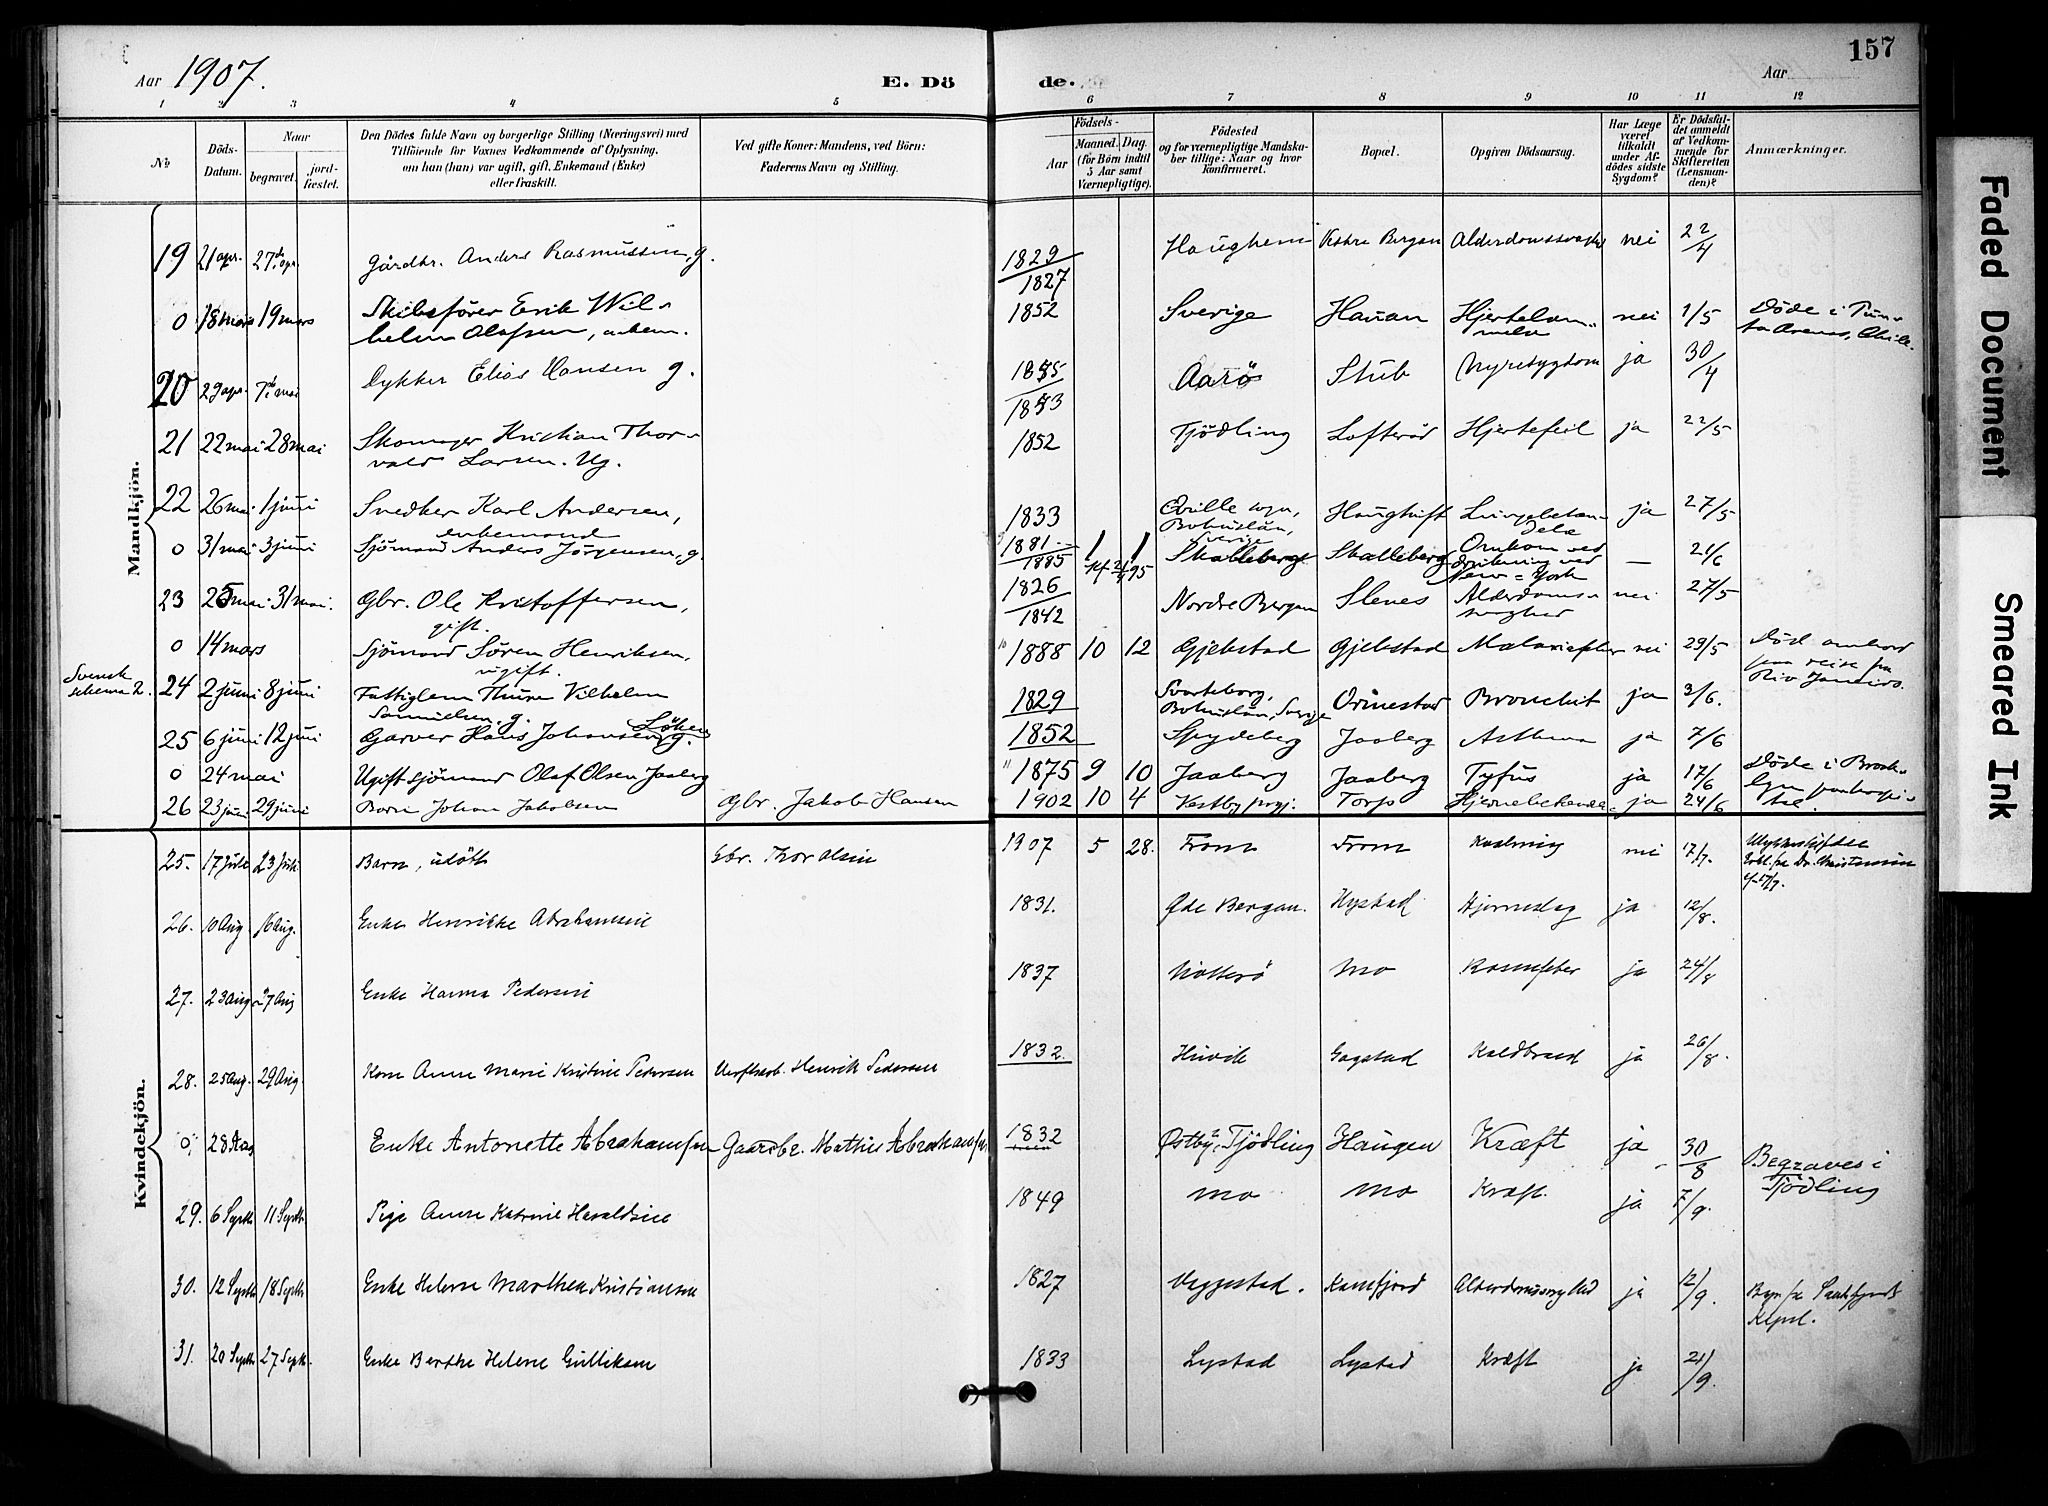 157
Aar 1907. E. Dö de. Aar
1 2 3 4 5 6 7 8 9 10 11 12
No Döds-Datum. Naar begravet. jord-fæstet.
Den Dödes fulde Navn og borgerlige Stilling (Næringsvei) med
Tilföiende for Voxnes Vedkommende af Oplysning,
om han (hun) var ugift, gift, Enkemand (Enke)
eller fraskilt.
Ved gifte Koner: Mandens, ved Börn:
Faderens Navn og Stilling.
Födsels-
Aar Maaned. Dag.
(for Börn indtil 5 Aar samt Værnepligtige).
Födested
og for værnepligtige Mandska-
ber tillige: Naar og hvor
konfirmeret.
Bopæl.
Opgiven Dödsaarsag.
Har Læge været tilkaldt under Af-dödes sidste Sygdom?
Er Dödsfal-det anmeldt af Vedkom-mende for Skifteretten (Lensman-den)?
Anmærkninger.
Mandkjön.
19 21 apr. 27de apr. Gårdbr. Anders Rasmussen, g. 1829 1827 Haughem Vestre Bergan Alderdomssvaghed nei 22/4
0 18 mars 19 mars Skibsförer Erik Wil-
helm Olafsen, enkem. 1852 Sverige Hauan Hjertelam-
melse nei 1/5 Döde i Pun-
ta Arenas, Chile.
20 29 apr. 7de mai Dykker Elias Hansen g. 1855 1853 Aarö Stub Nyresygdom ja 30/4
21 22 mai 28 mai Skomager Kristian Thor-
vald Larsen. Ug. 1852 Tjödling Lofteröd Hjertefeil ja 22/5
22 26 mai 1 juni Snedker Karl Andersen,
enkemand 1833 Qville sogn,
Bohuslän,
Sverige Haugtuft Lungebetæn-
delse ja 27/5
0 31 mai 3 juni Sjömand Anders Jörgensen, g. 1881 1885 Skalleberg Skalleberg Omkom ved
drukning ved
New-York — 21/6
23 25 mai 31 mai. Gbr. Ole Kristoffersen,
gift. 1826 1842 Nordre Bergan Slenes Alderdoms-
svaghed nei 27/5
0 14 mars Sjömand Sören Henriksen,
ugift. 1888 10 12 Gjekstad Gjekstad Malariafeber nei 29/5 Död ombord
paa reise fra
Rio Janeiro.
Svensk
schema 2. 24 2 juni 8 juni Fattiglem Thure Vilhelm
Samuelsen. g. 1829 Svarteborg,
Bohuslän, Sverige Ormestad Bronchit ja 3/6.
25 6 juni 12 juni Garver Hans Johansen Löken g. 1852 Spydeberg Jaaberg Asthma ja 7/6
0 24 mai Ugift sjömand Olaf Olsen Jaaberg 1875 9 10 Jaaberg Jaaberg Tyfus ja 17/6 Döde i Brook-
lyn paa hospi-
tal.
26 23 juni 29 juni Barn Johan Jakobsen Gbr. Jakob Hansen 1902 10 4 Vestby prgj. Torp ja 24/6
Kvindekjön.
25. 17 Juli 23 Juli Barn, udöbt Gbr. Thor Olsen 1907 5 28. Fram Fram Kvælning nei 17/7.
26. 10 Aug 16 Aug. Enke Henrikke Abrahamsen 1831. Öde Bergan. Nystad Hjerneslag ja 12/8.
27. 23 Aug 27 Aug Enke Hanna Pedersen 1837 Nötterö Mo ja 24/8
28. 25 Aug. 29 Aug. Kone Anne Marie Kristine Pedersen Værftsarb. Henrik Pedersen 1832. Huvik Gogstad Koldbrand ja 26/8.
0, 28 Aug Enke Antonette Abrahamsen Gaardbr. Mathis Abrahamsen 1832 Østby, Tjödling Haugen Kræft ja 30/8 Begraves i
Tjödling
29. 6 Septb 11 Septb Pige Anne Katrine Haraldsen 1849 Mo Mo Kræft. ja 7/9.
30. 12 Septb 18 Septb Enke Helene Marthea Kristiansen 1827 Veggestad. Kamfjord ja 12/9.
31. 20 Septb 27 Septb. Enke Berthe Helene Gulliksen 1833 Lystad Lystad Kræft ja 21/9.
Faded Document
Smeared Ink